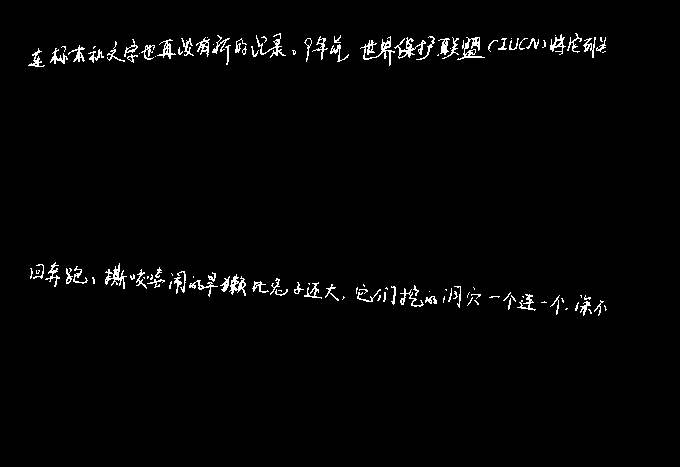 连标本和文字也再没有新的记录。9年前,世界保护联盟(IUCN)将它列为
回奔跑、撕咬嘻闹的旱獭比兔子还大,它们挖的洞穴一个连一个,深不